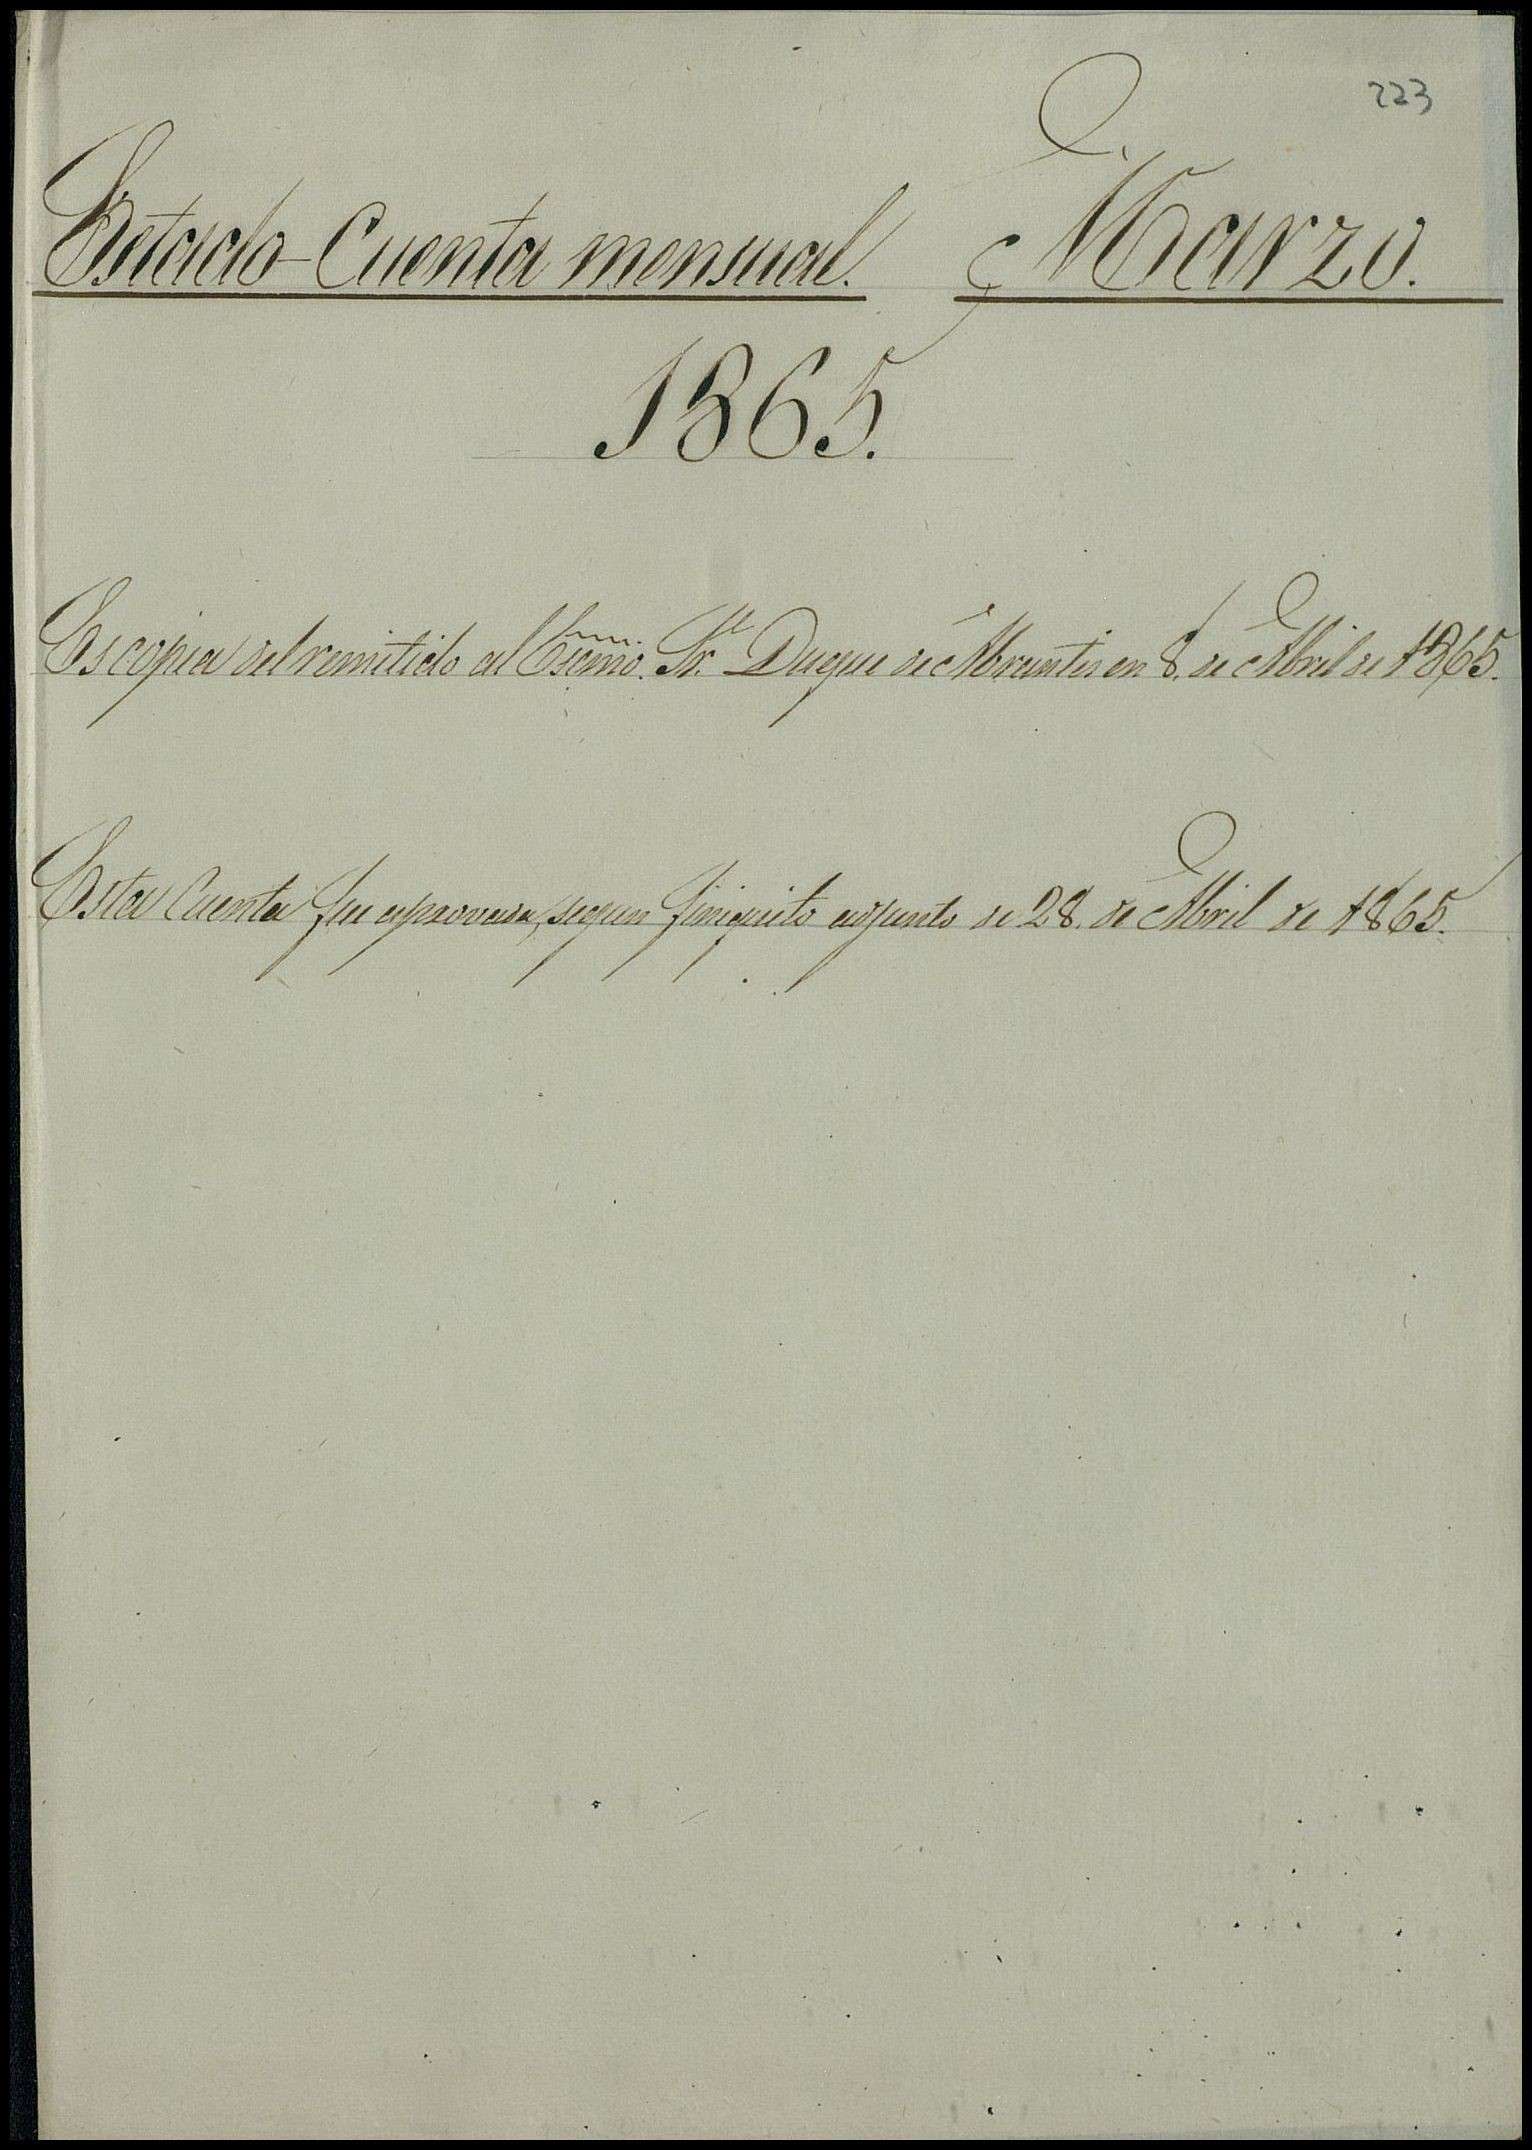 223
Estado-Cuenta mensual. Marzo.
1865.
Es copia del remitido al Escmo. Sr. Duque de Abrantes en 8. de Abril de 1865.
Esta Cuenta fue aprovada, segun finiquito adjunto de 28. de Abril de 1865.